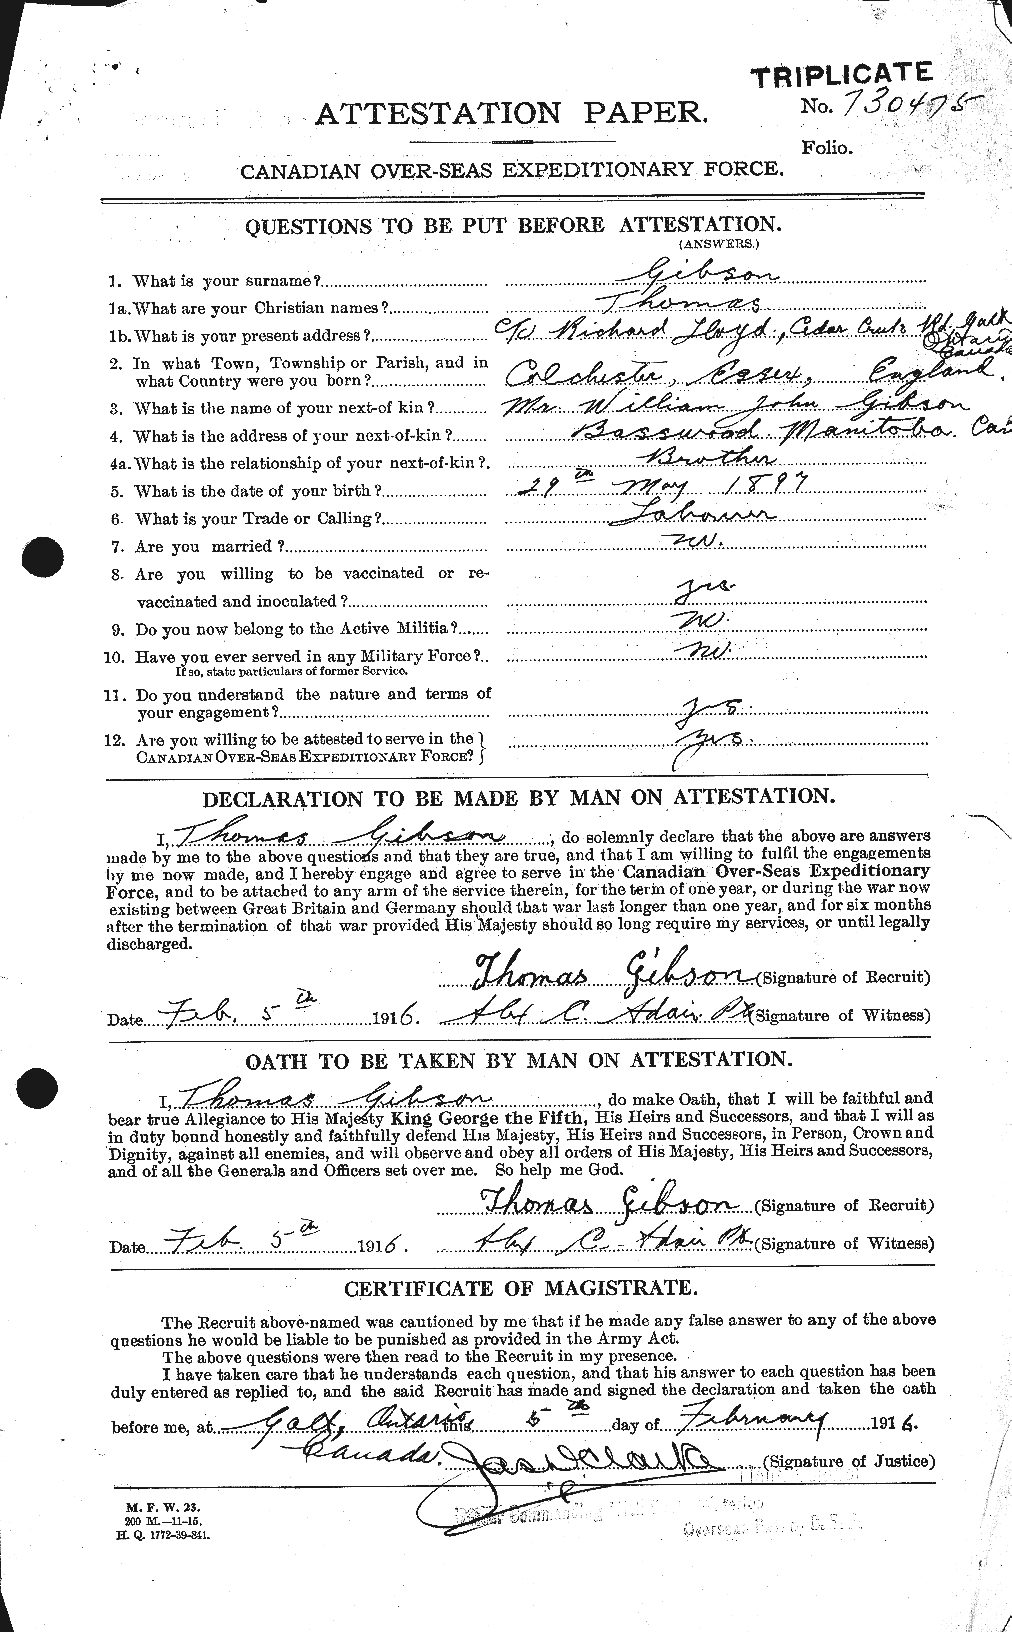 TRIPLICATE
No. 730475
ATTESTATION PAPER.
Folio.
CANADIAN OVER-SEAS EXPEDITIONARY FORCE.
QUESTIONS TO BE PUT BEFORE ATTESTATION.
(ANSWERS.)
1. What is your surname? Gibson
1a. What are your Christian names? Thomas
1b. What is your present address? C/o Richard Lloyd, Cedar Creek Rd, Galt Ontario Canada
2. In what Town, Township or Parish, and in
what Country were you born? Colchester, Essex, England.
3. What is the name of your next-of kin? Mr. William John Gibson
4. What is the address of your next-of-kin? Basswood Manitoba. Can
4a. What is the relationship of your next-of-kin? Brother
5. What is the date of your birth? 29th May 1897
6. What is your Trade or Calling? Labourer
7. Are you married? no.
8. Are you willing to be vaccinated or re-
vaccinated and inoculated? yes
9. Do you now belong to the Active Militia? no.
10. Have you ever served in any Military Force? no.
If so, state particulars of former Service.
11. Do you understand the nature and terms of
your engagement? yes.
12. Are you willing to be attested to serve in the
CANADIAN OVER-SEAS EXPEDITIONARY FORCE? yes.
DECLARATION TO BE MADE BY MAN ON ATTESTATION.
I, Thomas Gibson, do solemnly declare that the above are answers
made by me to the above questions and that they are true, and that I am willing to fulfil the engagements
by me now made, and I hereby engage and agree to serve in the Canadian Over-Seas Expeditionary
Force, and to be attached to any arm of the service therein, for the term of one year, or during the war now
existing between Great Britain and Germany should that war last longer than one year, and for six months
after the termination of that war provided His Majesty should so long require my services, or until legally
discharged.
Thomas Gibson (Signature of Recruit)
Date Feb. 5th 1916. Alex C. Adair Pte (Signature of Witness)
OATH TO BE TAKEN BY MAN ON ATTESTATION.
I, Thomas Gibson, do make Oath, that I will be faithful and
bear true Allegiance to His Majesty King George the Fifth, His Heirs and Successors, and that I will as
in duty bound honestly and faithfully defend His Majesty, His Heirs and Successors, in Person, Crown and
Dignity, against all enemies, and will observe and obey all orders of His Majesty, His Heirs and Successors,
and of all the Generals and Officers set over me. So help me God.
Thomas Gibson (Signature of Recruit)
Date Feb. 5th 1916. Alex C. Adair Pte. (Signature of Witness)
CERTIFICATE OF MAGISTRATE.
The Recruit above-named was cautioned by me that if he made any false answer to any of the above
questions he would be liable to be punished as provided in the Army Act.
The above questions were then read to the Recruit in my presence.
I have taken care that he understands each question, and that his answer to each question has been
duly entered as replied to, and the said Recruit has made and signed the declaration and taken the oath
before me, at Galt, Ontario this 5th day of February 1916.
Canada. Jas D Clarke (Signature of Justice)
M. F. W. 23.
200 M.—11-15.
H. Q. 1772-39-841.
Commanding
Overseas